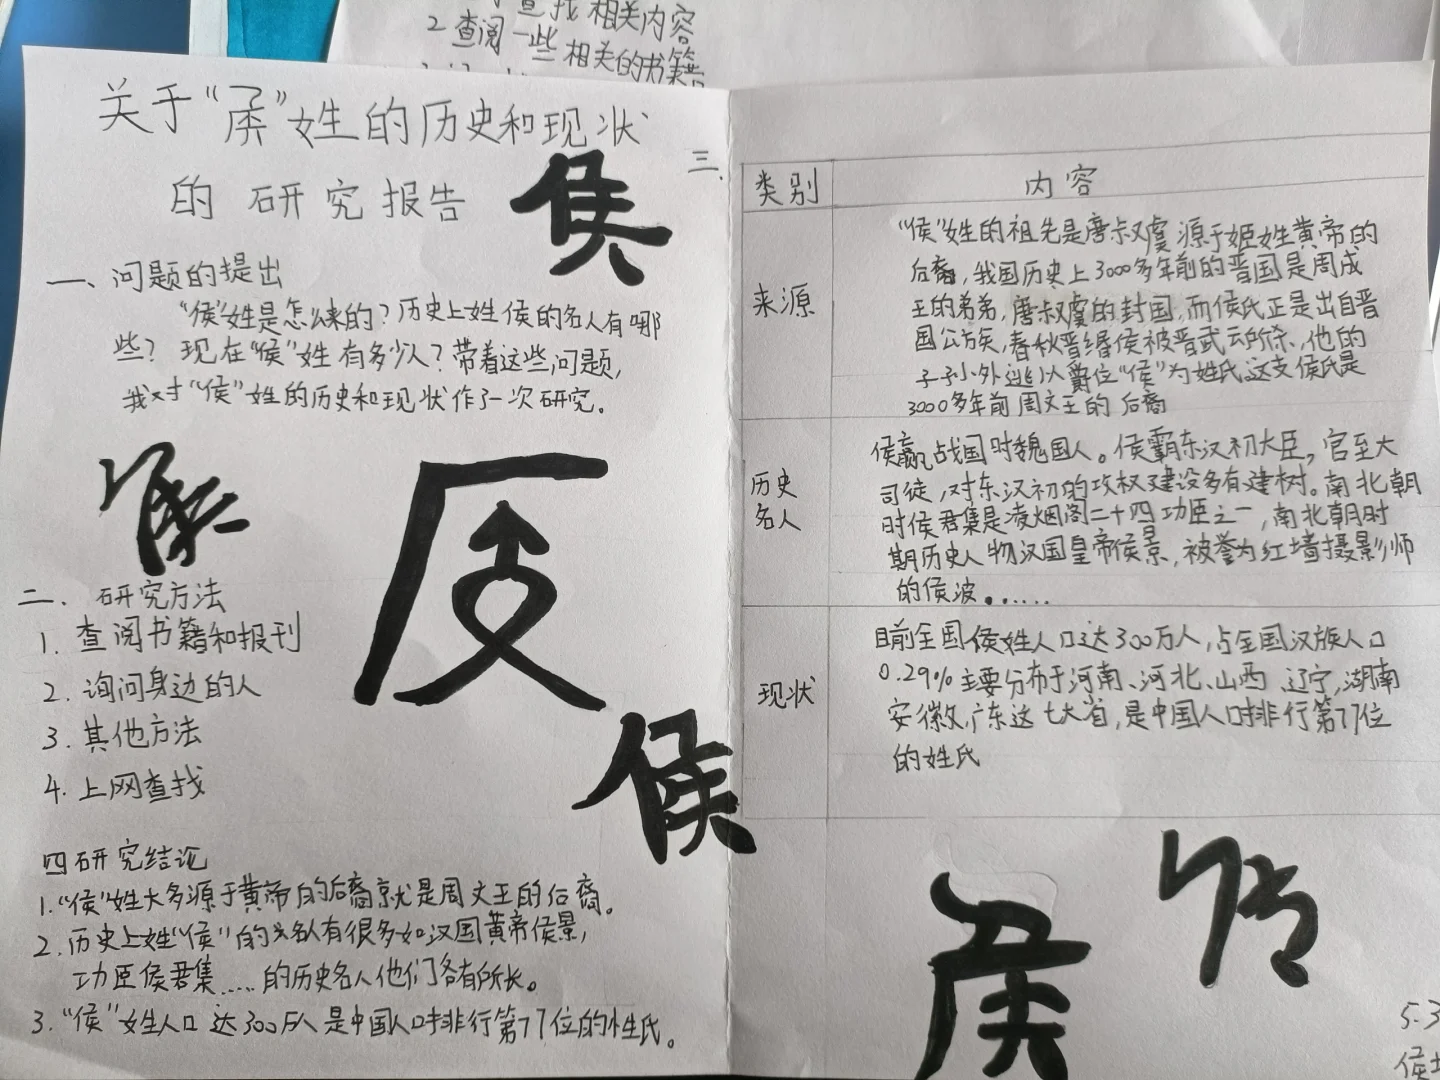 查找相关内容
2 查阅一些相关的书籍
关于“侯”姓的历史和现状
的研究报告
侯
一、问题的提出
“侯”姓是怎么来的?历史上姓侯的名人有哪
些?现在“侯”姓有多少人?带着这些问题,
我对“侯”姓的历史和现状作了一次研究。
侯
二、研究方法
1. 查阅书籍和报刊
2. 询问身边的人
3. 其他方法
4. 上网查找
侯
四 研究结论
1.“侯”姓大多源于黄帝的后裔就是周文王的后裔。
2. 历史上姓“侯”的名人有很多如汉国黄帝侯景,
功臣侯君集……的历史名人他们各有所长。
3.“侯”姓人口达300万人是中国人口排行第77位的姓氏。
三、
类别 内容
来源
“侯”姓的祖先是唐叔虞源于姬姓黄帝的
后裔,我国历史上3000多年前的晋国是周成
王的弟弟,唐叔虞的封国,而侯氏正是出自晋
国公族,春秋晋缗侯被晋武公所杀,他的
子孙外逃以爵位“侯”为姓氏。这支侯氏是
3000多年前周文王的后裔
历史
名人
侯赢战国时魏国人。侯霸东汉初大臣,官至大
司徒,对东汉初的政权建设多有建树。南北朝
时侯君集是凌烟阁二十四功臣之一,南北朝时
期历史人物汉国皇帝侯景,被誉为红墙摄影师
的侯波。……
现状
目前全国侯姓人口达300万人,占全国汉族人口
0.29%主要分布于河南、河北、山西、辽宁,湖南
安徽,广东这七大省,是中国人口排行第77位
的姓氏
5.3
侯